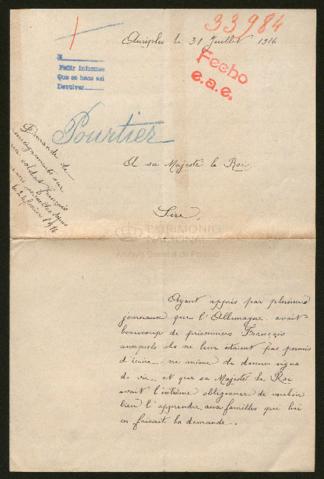 33984
le 31 Juillet 1916
Pedir Informe
Que se haga así
Fecho
e.a.e.
Pourtier
Demande de
renseignements sur
un soldat français
A sa Majesté le Roi
Sire,
PATRIMONIO
NACIONAL
Ayant appris par plusieurs
journaux que l'Allemagne avait
beaucoup de prisonniers Français
auxquels ils ne leur étaient pas permis
d'écrire ne même de donner signe
de vie, et que sa Majesté le Roi
avait l'extrême obligeance de vouloir
bien l'apprendre aux familles que lui
en faisait la demande.